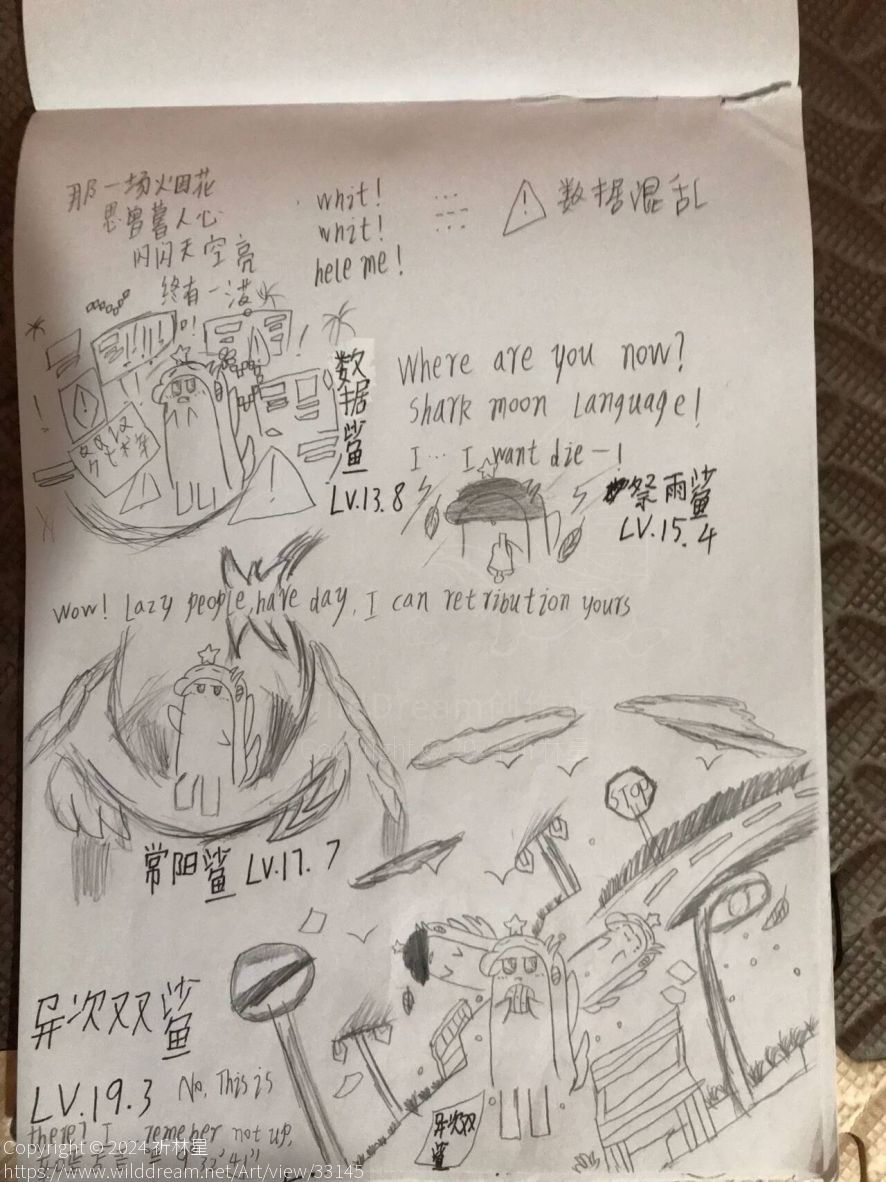 那一场火因花
思曾蓄人心
闪闪天空亮
终有一
whit!
whit!
hele me!
⚠ 数据混乱
数据鲨
LV.13.8
Where are you now?
Shark moon Language!
I… I want die—!
祭雨鲨
LV.15.4
Wow! Lazy people, have day, I can retribution yours
常阳鲨 LV.17.7
STOP
异次双鲨
LV.19.3 No. This is
there? I remeber not up.
异次双
鲨
Copyright © 2024 祈林星
https://www.wilddream.net/Art/view/33145